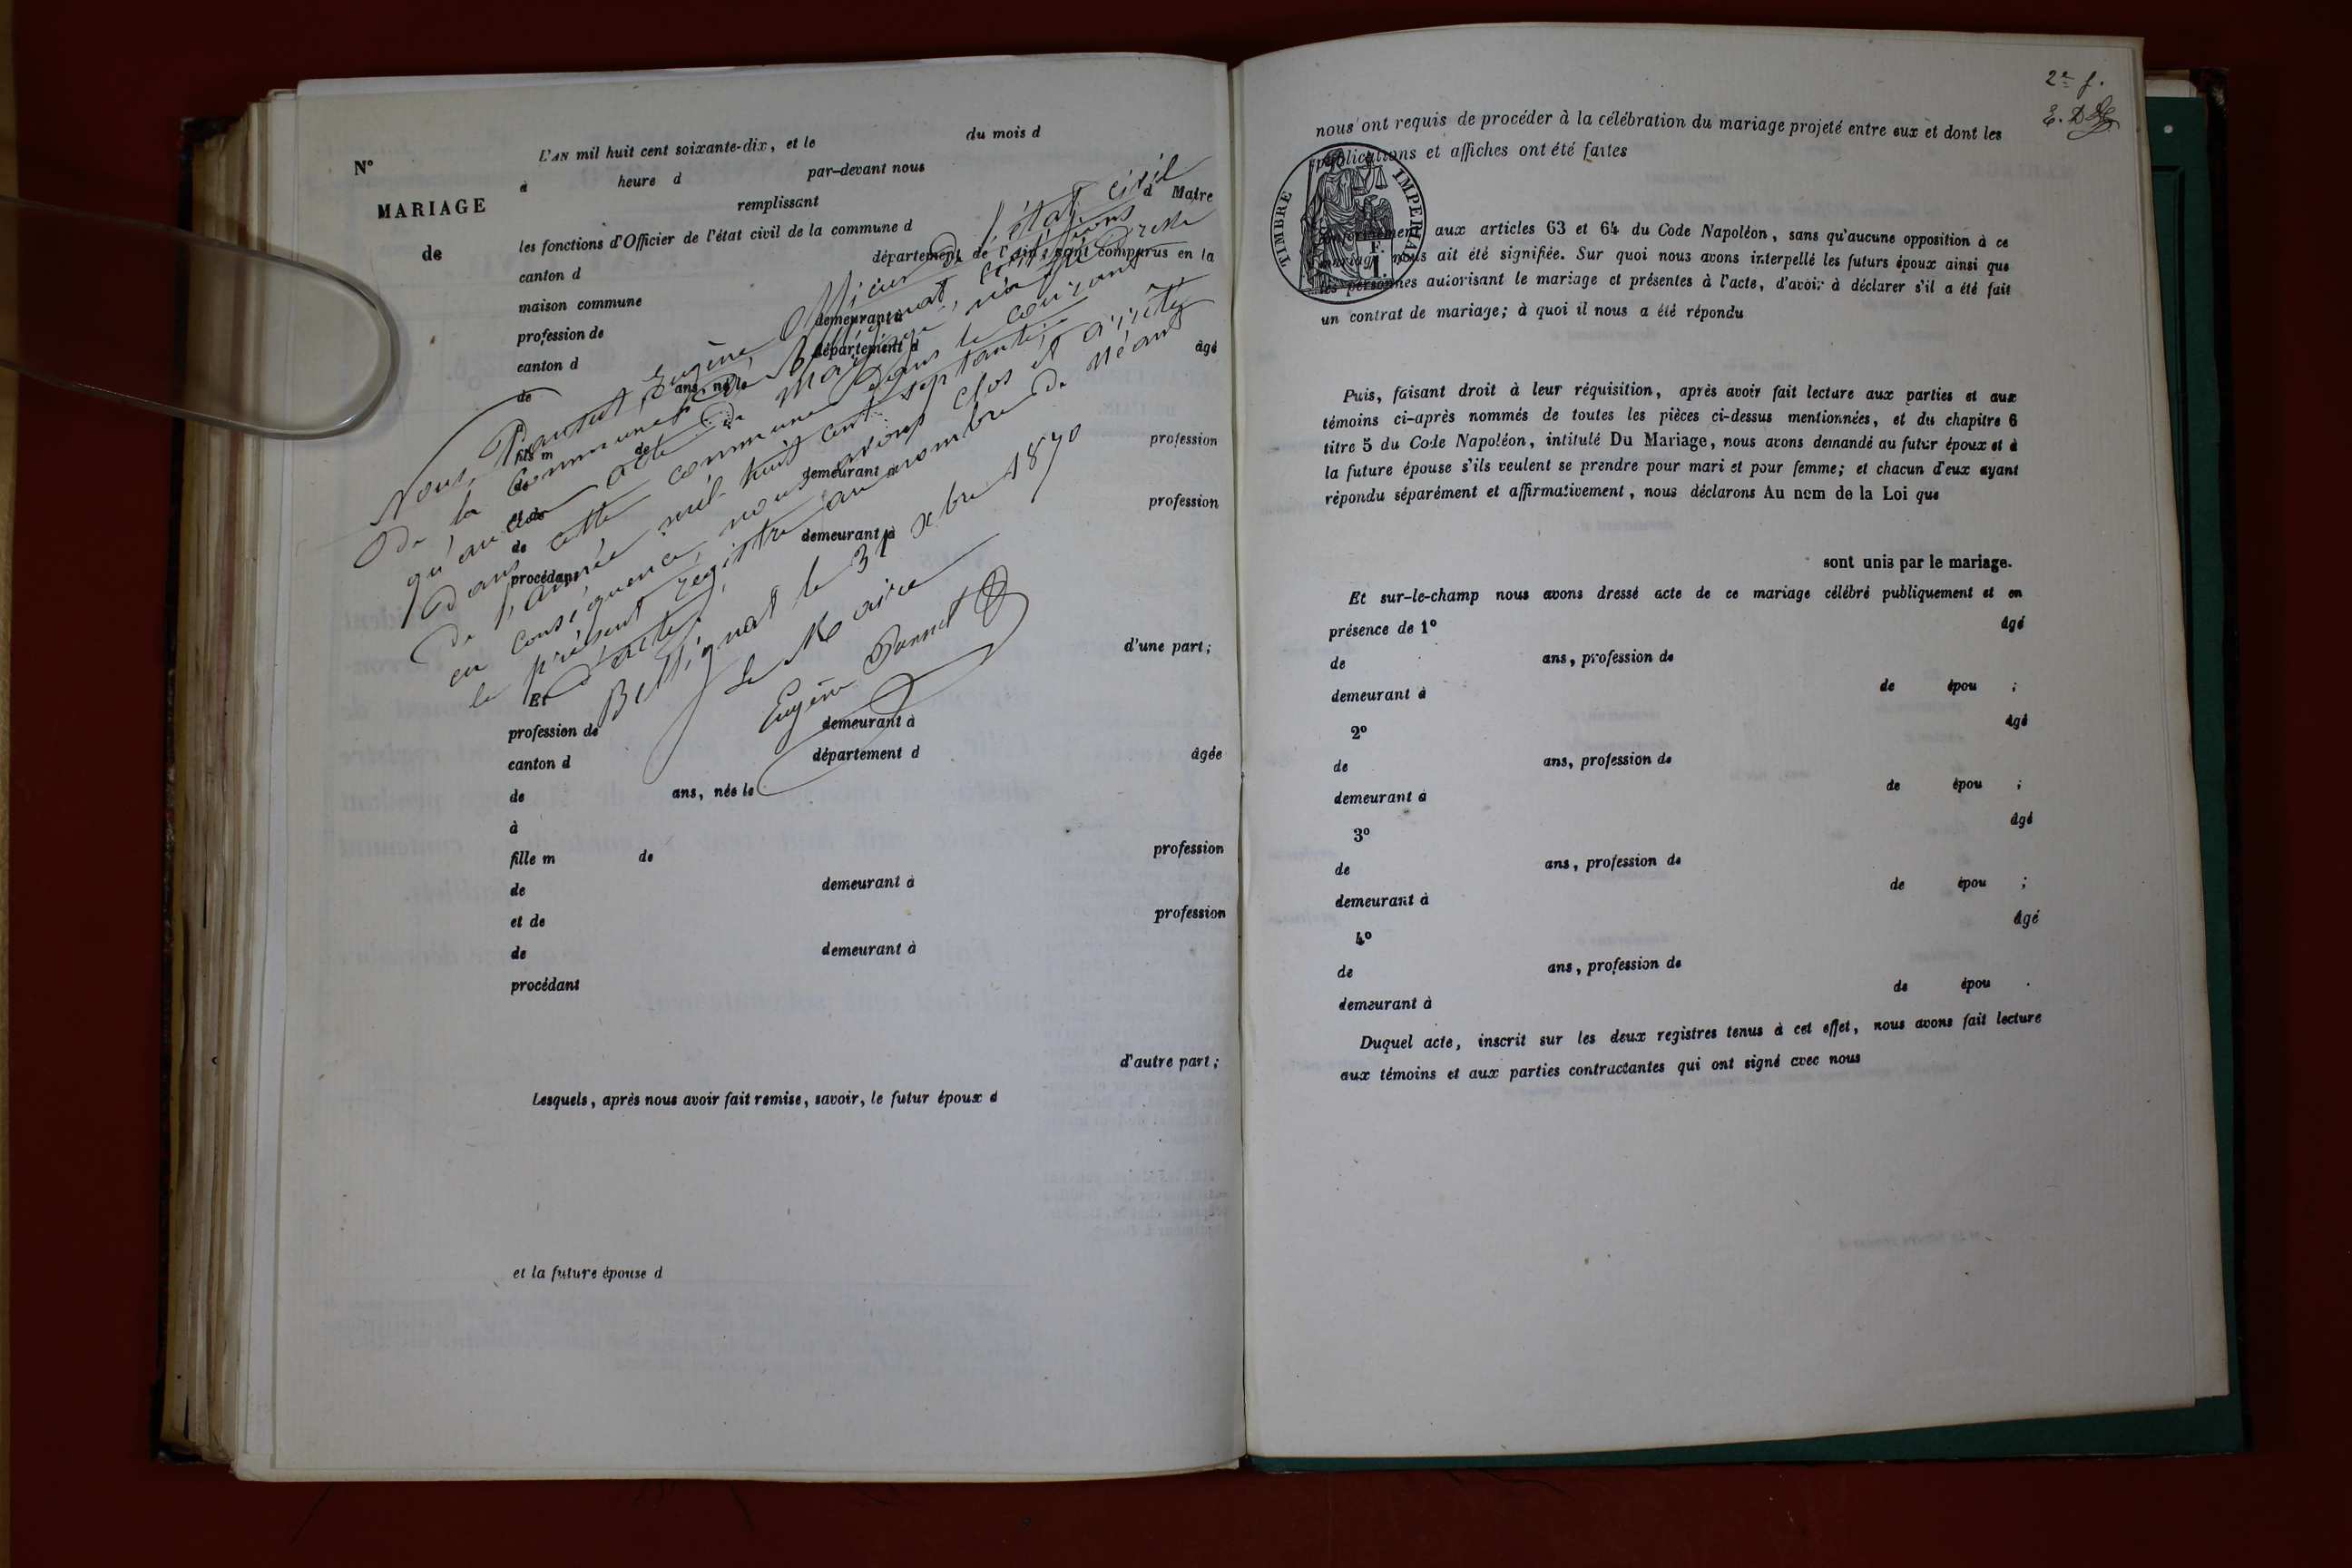 N° L'AN mil huit cent soixante-dix, et le du mois d
à heure d par-devant nous
MARIAGE remplissant d Maire
de les fonctions d'Officier de l'état civil de la commune d
canton d département de l'Ain, sont comparus en la
maison commune
profession de demeurant à
canton d département d âgé
de ans, né le
fils m de profession
de demeurant à
et de profession
de demeurant à
procédant
d'une part;
Et
profession de demeurant à
canton d département d âgée
de ans, née le
à
fille m de profession
de demeurant à
et de profession
de demeurant à
procédant
d'autre part;
Lesquels, après nous avoir fait remise, savoir, le futur époux d
et la future épouse d
Nous, Eugène, Officier de l'état civil
de la commune de Bellignat, certifions
qu'aucun acte de Mariage, n'a été
dans cette commune dans le courant
de l'année mil huit cent septante;
en conséquence, nous avons clos et arrêté
le présent registre au nombre de Néant
d'actes,
Bellignat le 31 xbre 1870
Le Maire
Eugène
2e f.
nous ont requis de procéder à la célébration du mariage projeté entre eux et dont les
publications et affiches ont été faites
TIMBRE IMPERIAL
F.
1.
conformément aux articles 63 et 64 du Code Napoléon, sans qu'aucune opposition à ce
mariage nous ait été signifiée. Sur quoi nous avons interpellé les futurs époux ainsi que
les personnes autorisant le mariage et présentes à l'acte, d'avoir à déclarer s'il a été fait
un contrat de mariage; à quoi il nous a été répondu
Puis, faisant droit à leur réquisition, après avoir fait lecture aux parties et aux
témoins ci-après nommés de toutes les pièces ci-dessus mentionnées, et du chapitre 6
titre 5 du Code Napoléon, intitulé Du Mariage, nous avons demandé au futur époux et à
la future épouse s'ils veulent se prendre pour mari et pour femme; et chacun d'eux ayant
répondu séparément et affirmativement, nous déclarons Au nom de la Loi que
sont unis par le mariage.
Et sur-le-champ nous avons dressé acte de ce mariage célébré publiquement et en
présence de 1° âgé
de ans, profession de
demeurant à de épou ;
2° âgé
de ans, profession de
demeurant à de épou ;
3° âgé
de ans, profession de
demeurant à de épou ;
4° âgé
de ans, profession de
demeurant à de épou .
Duquel acte, inscrit sur les deux registres tenus à cet effet, nous avons fait lecture
aux témoins et aux parties contractantes qui ont signé avec nous